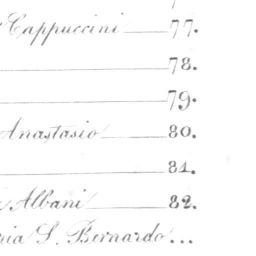 Cappuccini 77.
78.
79.
Anastasio 80.
81.
Albani 82.
ria S. Bernardo...